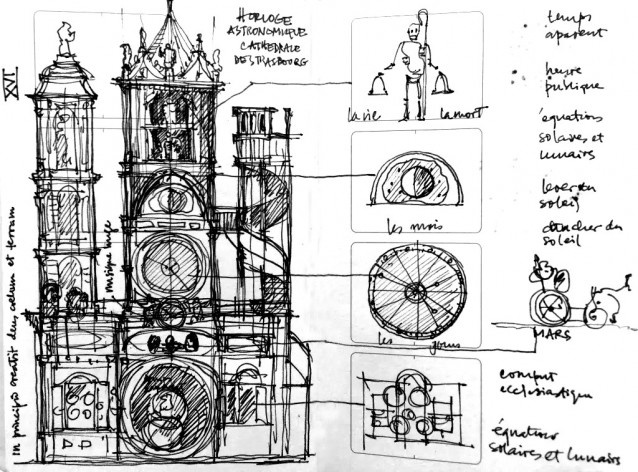 XVI
HORLOGE
ASTRONOMIQUE
CATHEDRALE
DE STRASBOURG
la vie
la mort
les mois
les jours
temps
apparent
heure
publique
équations
solaires et
lunairs
lever du
soleil
coucher du
soleil
MARS
comput
ecclesiastique
équations
solaires et lunairs
in principio creavit deus cœlum et terram